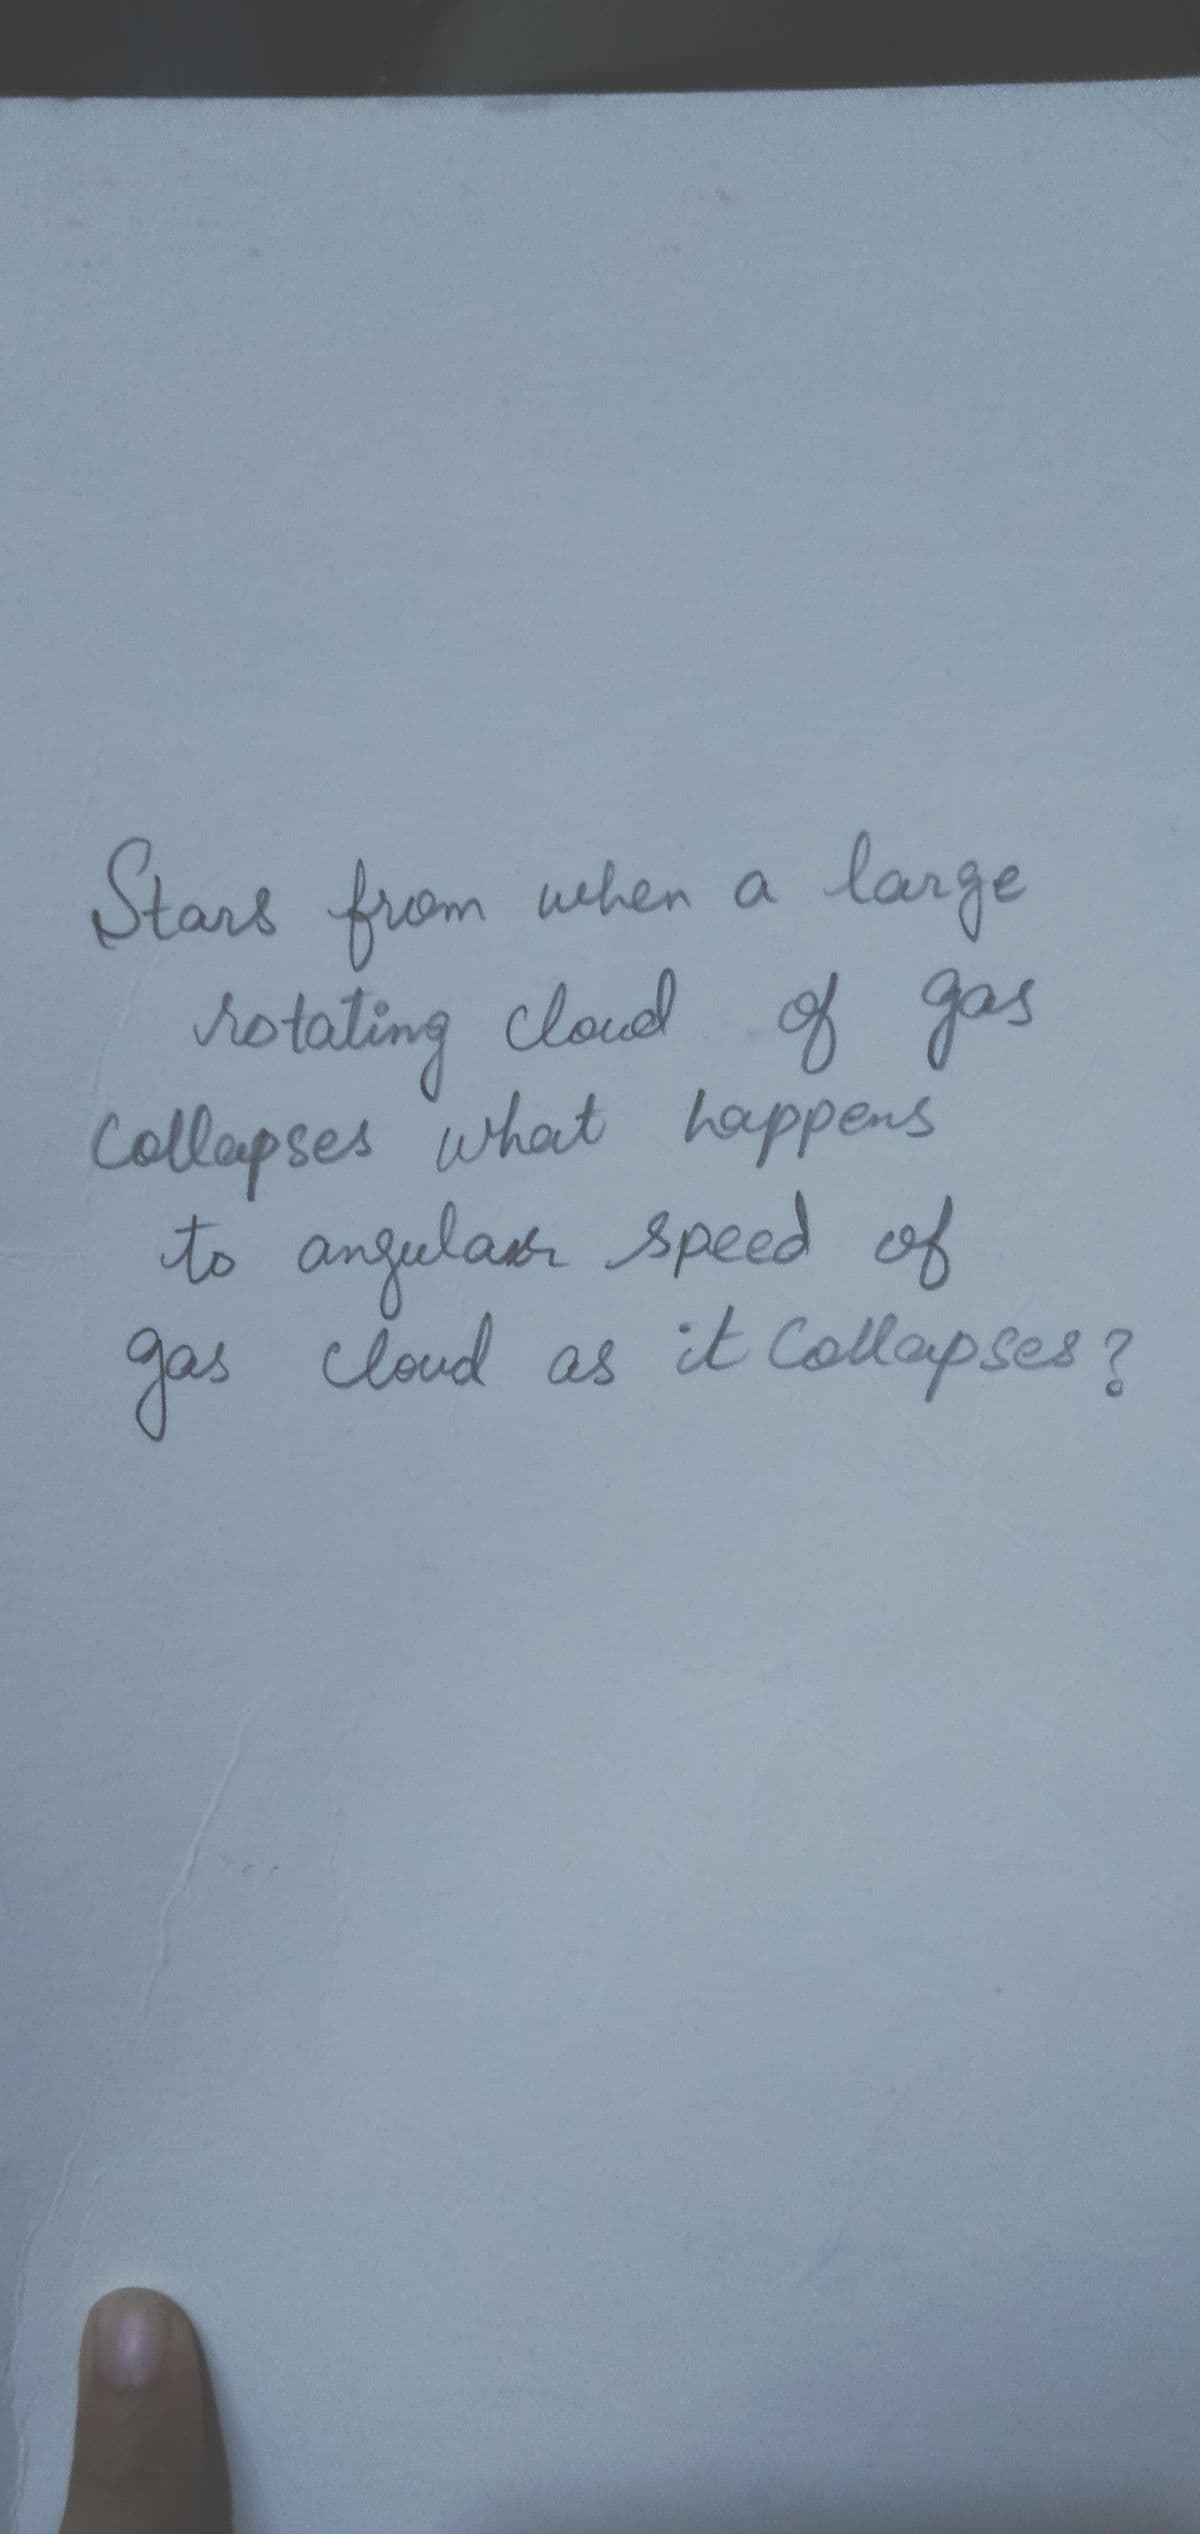 Stars from when a large
rotating cloud of gas
Collapses what happens
to angular speed of
gas cloud as it Collapses?